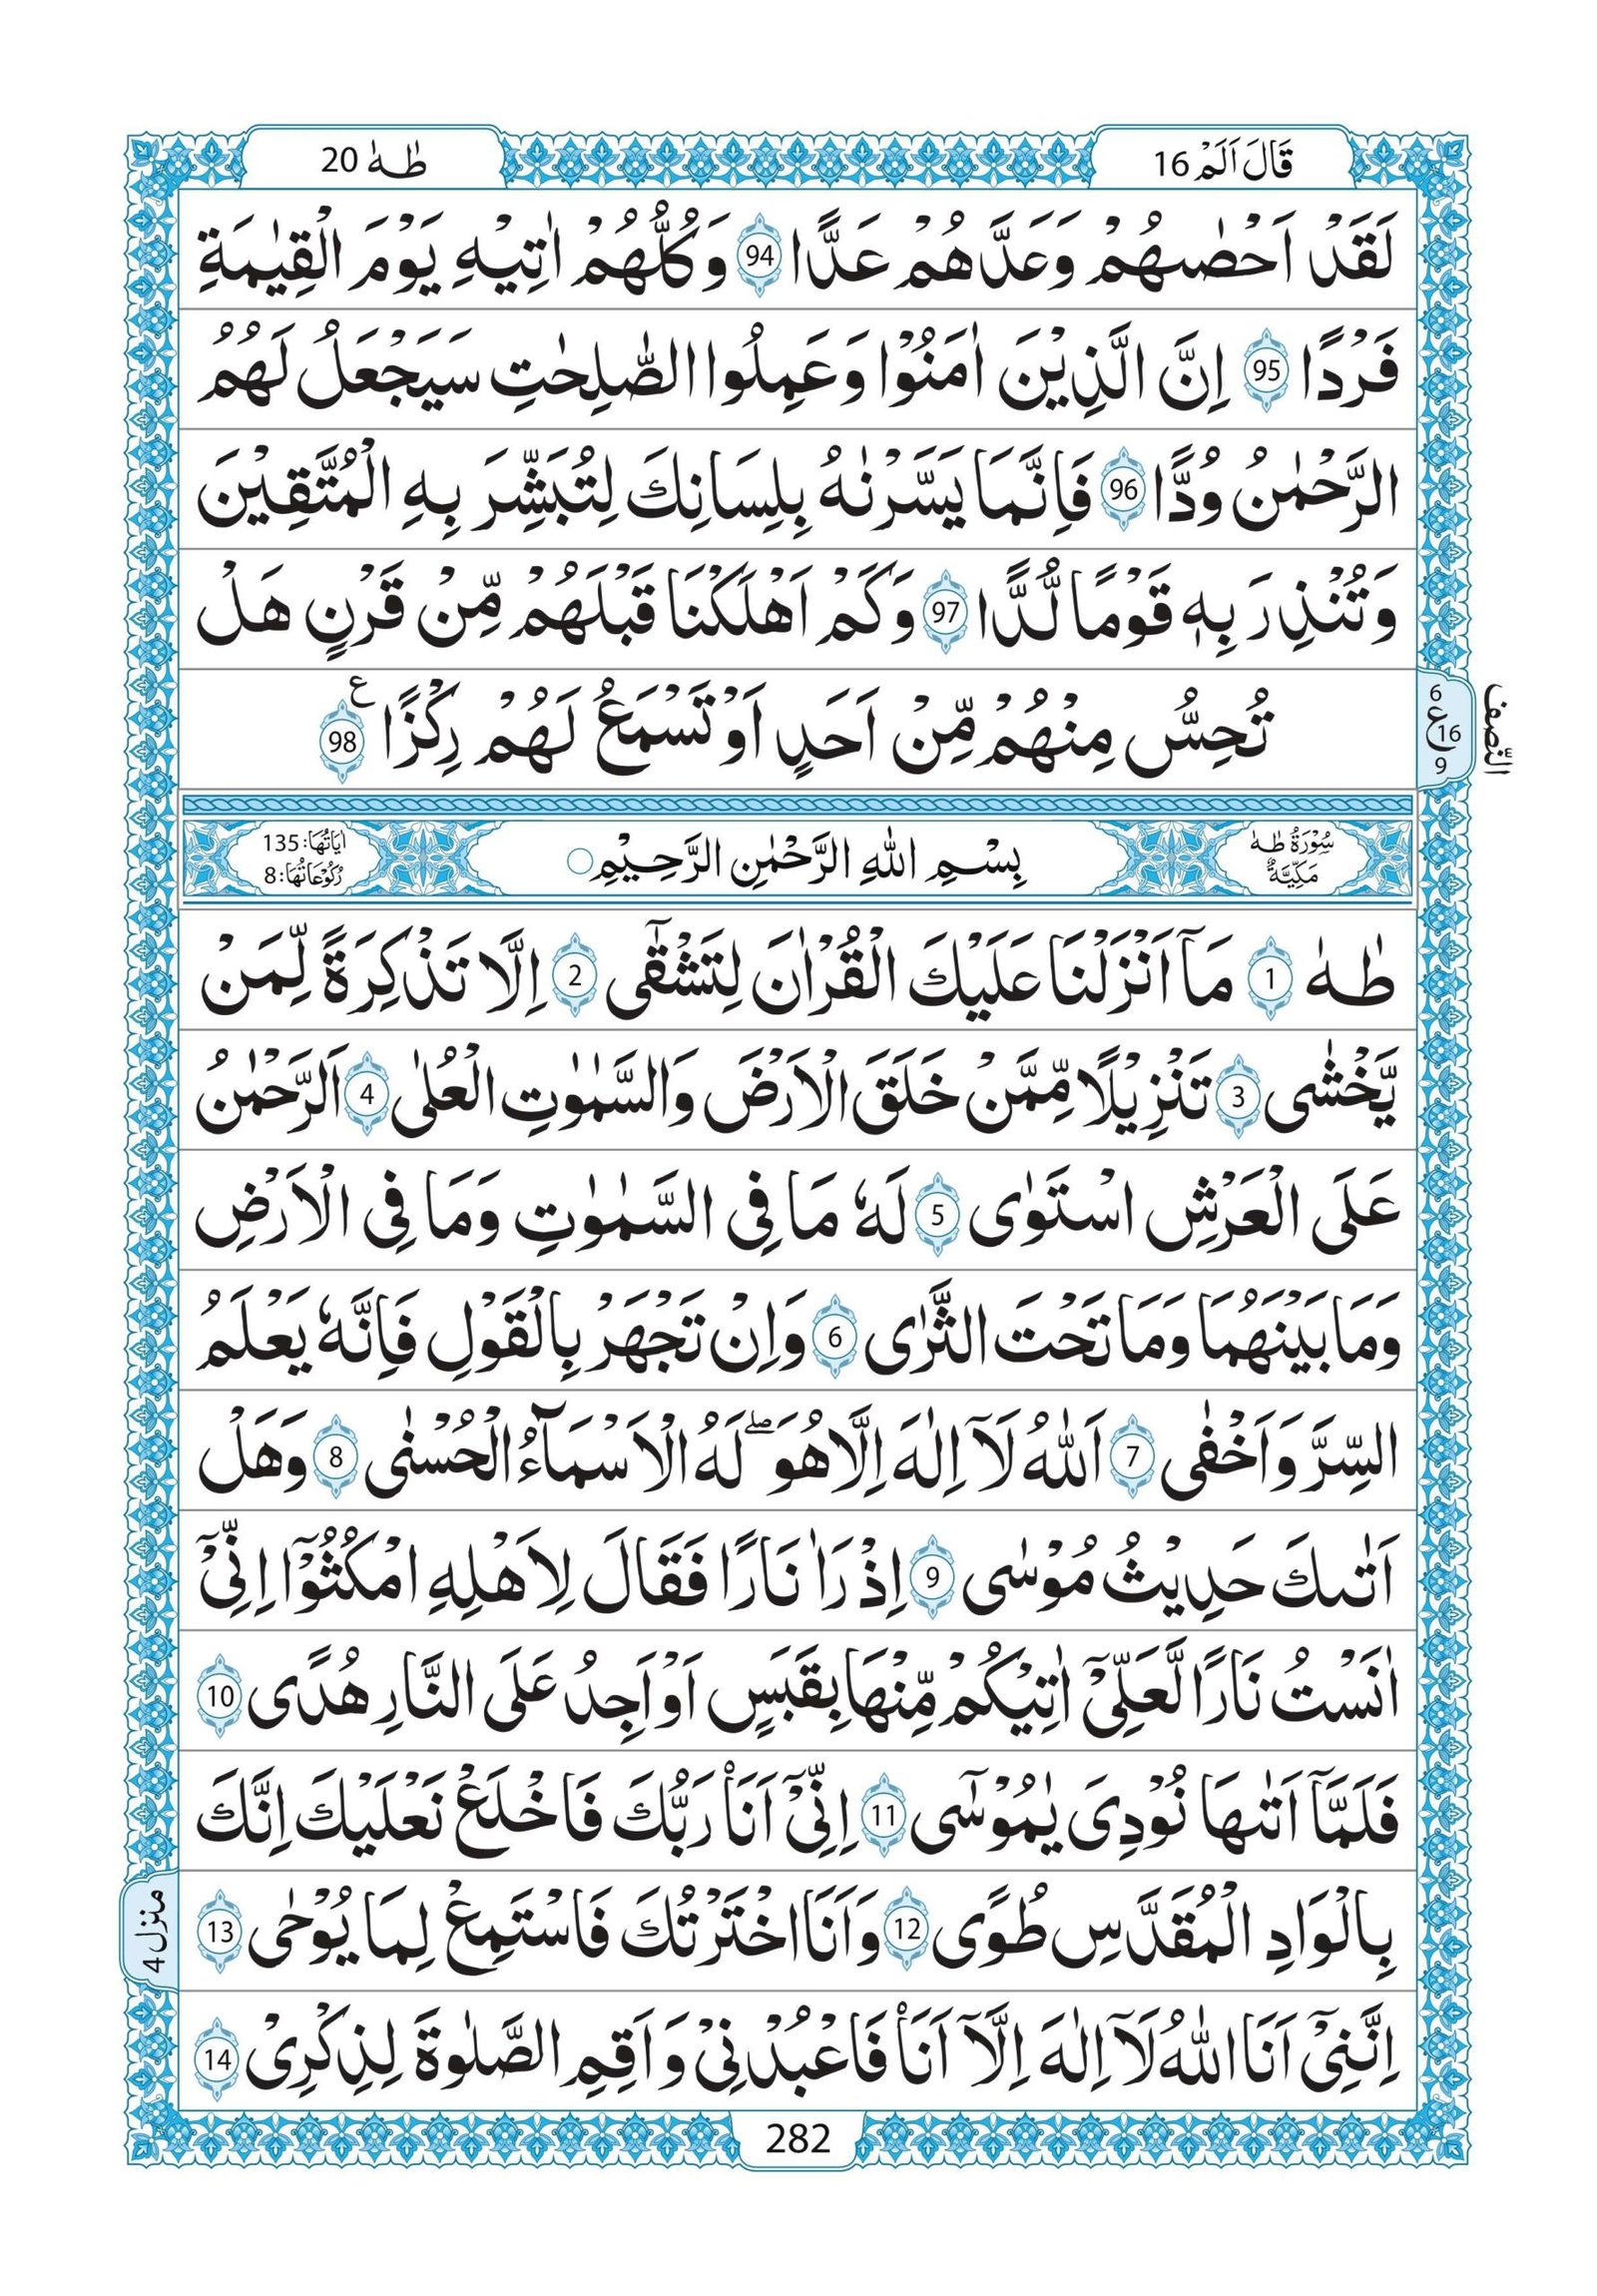 قَالَ اَلَمۡ 16
طٰهٰ 20
لَقَدۡ اَحۡصٰىهُمۡ وَعَدَّهُمۡ عَدًّا 94 وَكُلُّهُمۡ اٰتِيۡهِ يَوۡمَ الۡقِيٰمَةِ
فَرۡدًا 95 اِنَّ الَّذِيۡنَ اٰمَنُوۡا وَعَمِلُوا الصّٰلِحٰتِ سَيَجۡعَلُ لَهُمُ
الرَّحۡمٰنُ وُدًّا 96 فَاِنَّمَا يَسَّرۡنٰهُ بِلِسَانِكَ لِتُبَشِّرَ بِهِ الۡمُتَّقِيۡنَ
وَتُنۡذِرَ بِهٖ قَوۡمًا لُّدًّا 97 وَكَمۡ اَهۡلَكۡنَا قَبۡلَهُمۡ مِّنۡ قَرۡنٍ هَلۡ
تُحِسُّ مِنۡهُمۡ مِّنۡ اَحَدٍ اَوۡ تَسۡمَعُ لَهُمۡ رِكۡزًا ع 98
6
ع 16
9
النّصف
سُوۡرَةُ طٰهٰ
مَكِّيَّةٌ
بِسۡمِ اللهِ الرَّحۡمٰنِ الرَّحِيۡمِ
اٰيَاتُهَا: 135
رُكُوۡعَاتُهَا: 8
طٰهٰ 1 مَاۤ اَنۡزَلۡنَا عَلَيۡكَ الۡقُرۡاٰنَ لِتَشۡقٰٓى 2 اِلَّا تَذۡكِرَةً لِّمَنۡ
يَّخۡشٰى 3 تَنۡزِيۡلًا مِّمَّنۡ خَلَقَ الۡاَرۡضَ وَالسَّمٰوٰتِ الۡعُلٰى 4 اَلرَّحۡمٰنُ
عَلَى الۡعَرۡشِ اسۡتَوٰى 5 لَهٗ مَا فِى السَّمٰوٰتِ وَمَا فِى الۡاَرۡضِ
وَمَا بَيۡنَهُمَا وَمَا تَحۡتَ الثَّرٰى 6 وَاِنۡ تَجۡهَرۡ بِالۡقَوۡلِ فَاِنَّهٗ يَعۡلَمُ
السِّرَّ وَاَخۡفٰى 7 اَللهُ لَاۤ اِلٰهَ اِلَّا هُوَ ۖ لَهُ الۡاَسۡمَآءُ الۡحُسۡنٰى 8 وَهَلۡ
اَتٰىكَ حَدِيۡثُ مُوۡسٰى 9 اِذۡ رَاٰ نَارًا فَقَالَ لِاَهۡلِهِ امۡكُثُوۡۤا اِنِّىۡۤ
اٰنَسۡتُ نَارًا لَّعَلِّىۡۤ اٰتِيۡكُمۡ مِّنۡهَا بِقَبَسٍ اَوۡ اَجِدُ عَلَى النَّارِ هُدًى 10
فَلَمَّاۤ اَتٰىهَا نُوۡدِىَ يٰمُوۡسٰٓى 11 اِنِّىۡۤ اَنَا۟ رَبُّكَ فَاخۡلَعۡ نَعۡلَيۡكَ اِنَّكَ
بِالۡوَادِ الۡمُقَدَّسِ طُوًى 12 وَاَنَا اخۡتَرۡتُكَ فَاسۡتَمِعۡ لِمَا يُوۡحٰى 13
منزل 4
اِنَّنِىۡۤ اَنَا اللهُ لَاۤ اِلٰهَ اِلَّاۤ اَنَا۟ فَاعۡبُدۡنِىۡ وَاَقِمِ الصَّلٰوةَ لِذِكۡرِىۡ 14
282